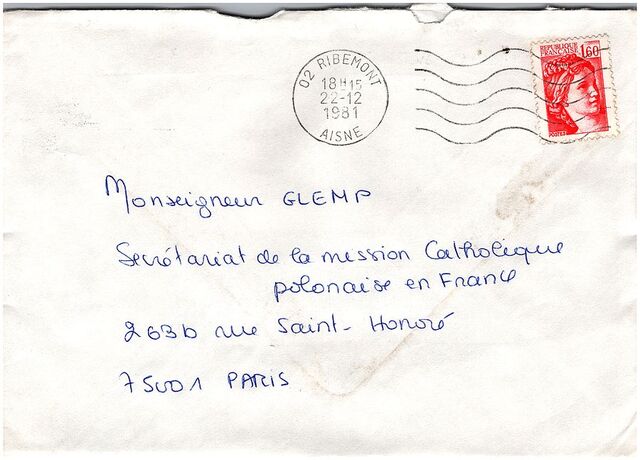 02 RIBEMONT
18H15
22-12
1981
AISNE
REPUBLIQUE
FRANÇAISE
1,60
POSTES
Monseigneur GLEMP
Secrétariat de la mission Catholique
polonaise en France
263b rue Saint-Honoré
75001 PARIS